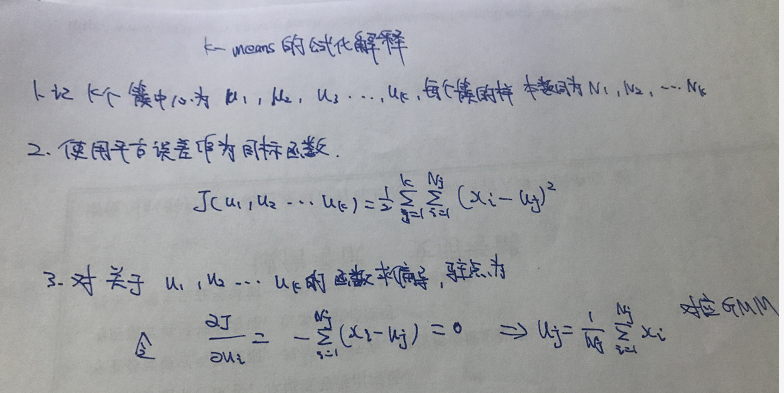 k-means的公式化解释
1. 记 K个簇中心为 u₁, u₂, u₃ ···, uₖ, 每个簇的样本数目为 N₁, N₂, ··· Nₖ
2. 使用平方误差作为目标函数.
J(u₁, u₂ ··· uₖ) = 1/2 ∑_{j=1}^{k} ∑_{i=1}^{Nj} (xᵢ - uⱼ)²
3. 对关于 u₁, u₂ ··· uₖ的函数求偏导, 驻点为
对应GMM
令 ∂J/∂uᵢ = - ∑_{i=1}^{Nj} (xᵢ - uⱼ) = 0 ⇒ uⱼ = 1/Nj ∑_{i=1}^{Nj} xᵢ